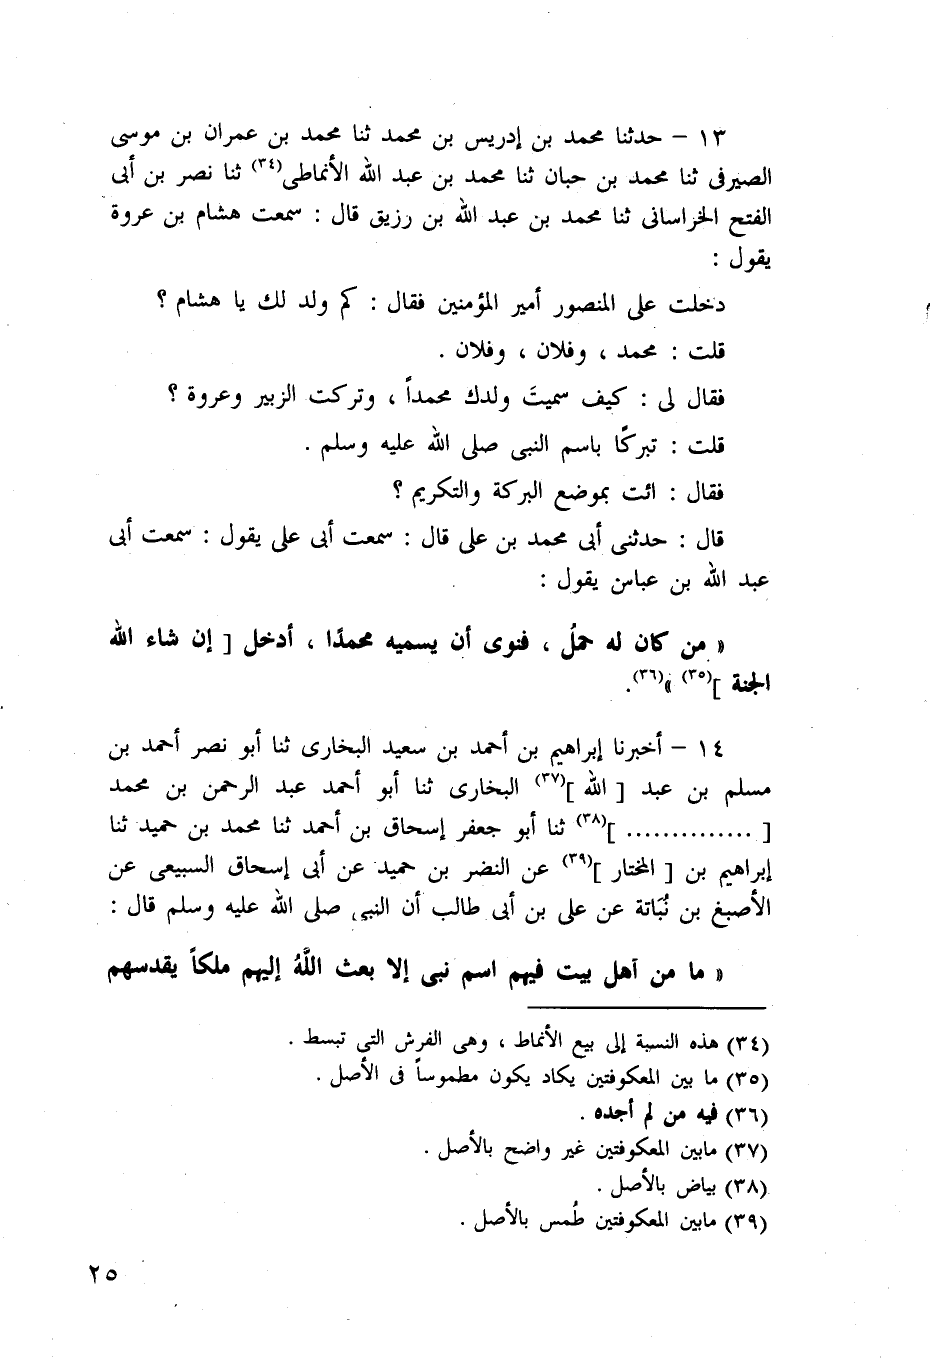 ١٣ - حدثنا محمد بن إدريس بن محمد ثنا محمد بن عمران بن موسى
الصيرفى ثنا محمد بن حبان ثنا محمد بن عبد الله الأنماطى(٣٤) ثنا نصر بن أبى
الفتح الخراسانى ثنا محمد بن عبد الله بن رزيق قال : سمعت هشام بن عروة
يقول :
دخلت على المنصور أمير المؤمنين فقال : كم ولد لك يا هشام ؟
قلت : محمد ، وفلان ، وفلان .
فقال لى : كيف سميتَ ولدك محمداً ، وتركت الزبير وعروة ؟
قلت : تبركًا باسم النبى صلى الله عليه وسلم .
فقال : ائت بموضع البركة والتكريم ؟
قال : حدثنى أبى محمد بن على قال : سمعت أبى على يقول : سمعت أبى
عبد الله بن عباس يقول :
« من كان له حملُ ، فنوى أن يسميه محمدًا ، أدخل [ إن شاء الله
الجنة ](٣٥) »(٣٦).
١٤ - أخبرنا إبراهيم بن أحمد بن سعيد البخارى ثنا أبو نصر أحمد بن
مسلم بن عبد [ الله ](٣٧) البخارى ثنا أبو أحمد عبد الرحمن بن محمد
[ .............. ](٣٨) ثنا أبو جعفر إسحاق بن أحمد ثنا محمد بن حميد ثنا
إبراهيم بن [ المختار ](٣٩) عن النضر بن حميد عن أبى إسحاق السبيعى عن
الأصبغ بن نُبَاتة عن على بن أبى طالب أن النبى صلى الله عليه وسلم قال :
« ما من أهل بيت فيهم اسم نبى إلا بعث اللَّهُ إليهم ملكاً يقدسهم
(٣٤) هذه النسبة إلى بيع الأنماط ، وهى الفرش التى تبسط .
(٣٥) ما بين المعكوفتين يكاد يكون مطموساً فى الأصل .
(٣٦) فيه من لم أجده .
(٣٧) مابين المعكوفتين غير واضح بالأصل .
(٣٨) بياض بالأصل .
(٣٩) مابين المعكوفتين طُمس بالأصل .
٢٥